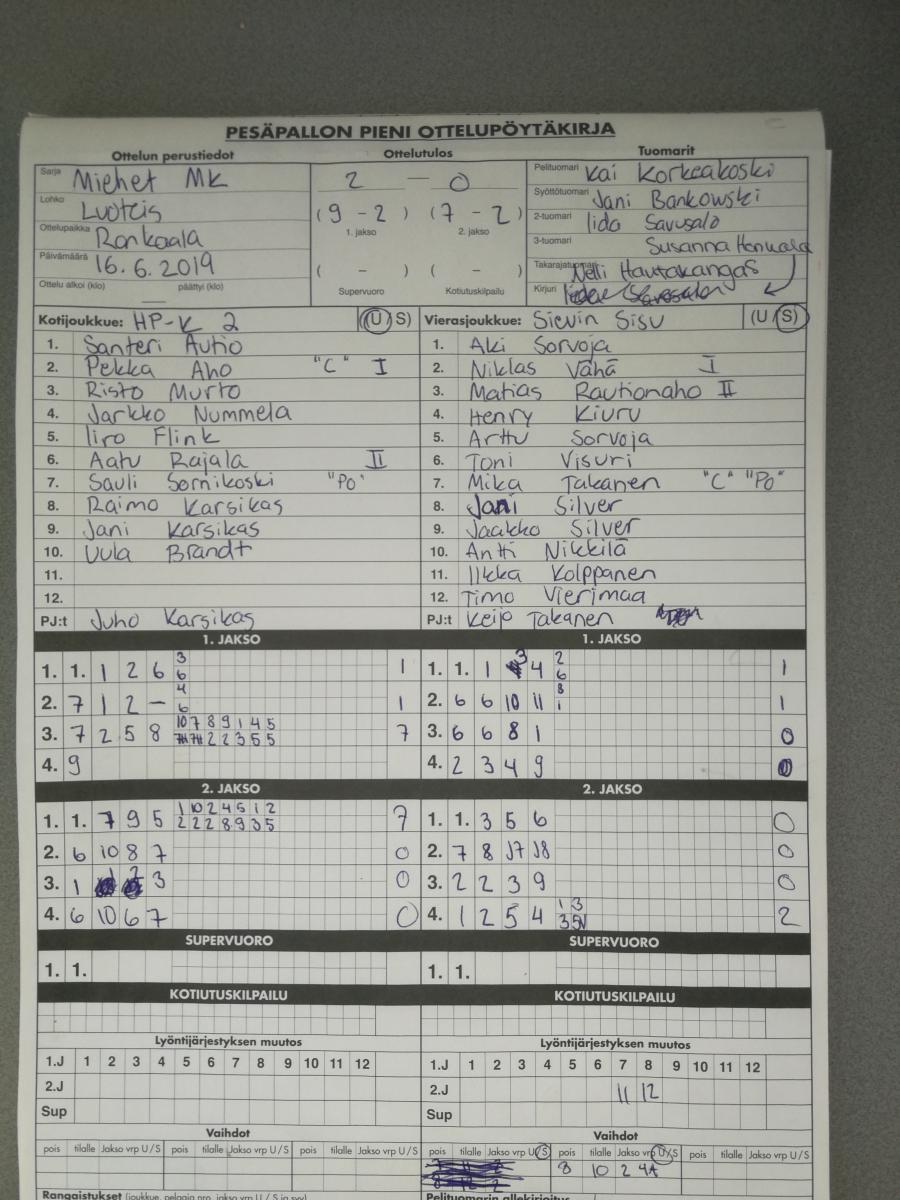 PESÄPALLON PIENI OTTELUPÖYTÄKIRJA
Ottelun perustiedot Ottelutulos Tuomarit
Sarja Miehet MK
Lohko
Ottelupaikka Ronkaala
Päivämäärä 16.6.2019
Ottelu alkoi (klo) — päättyi (klo)
2 — 0
(9 - 2) (7 - 2)
1. jakso 2. jakso
( - ) ( - )
Supervuoro Kotiutuskilpailu
Pelituomari Kai Korkeakoski
Syöttötuomari Jani Bankowski
2-tuomari Iida Savusalo
3-tuomari Susanna
Takarajatuomari Nelli Hautakangas
Kirjuri
Kotijoukkue: HP-K 2 (U/S) Vierasjoukkue: Sievin Sisu (U/S)
1. Santeri Autio
2. Pekka Aho "C" I
3. Risto Murto
4. Jarkko Nummela
5. Iiro Flink
6. Aatu Rajala II
7. Sauli Sornikoski "Po"
8. Raimo Karsikas
9. Jani Karsikas
10. Uula Brandt
11.
12.
PJ:t Juho Karsikas
1. Aki Sorvoja
2. Niklas Vähä I
3. Matias Rautionaho II
4. Henry Kiuru
5. Arttu Sorvoja
6. Toni Visuri
7. Mika Takanen "C" "Po"
8. Jani Silver
9. Jaakko Silver
10. Antti Nikkilä
11. Ilkka Kolppanen
12. Timo Vierimaa
PJ:t Keijo Takanen
1. JAKSO 1. JAKSO
1. 1. 1 2 6 3 6 1
2. 7 1 2 — 4 6 1
3. 7 2 5 8 10 7 8 9 1 4 5 2 2 3 5 5 7
4. 9
1. 1. 1 3 4 2 6 1
2. 6 6 10 11 8 1 1
3. 6 6 8 1 0
4. 2 3 4 9 0
2. JAKSO 2. JAKSO
1. 1. 7 9 5 1 10 2 4 5 1 2 2 2 2 8 9 3 5 7
2. 6 10 8 7 0
3. 1 2 3 0
4. 6 10 6 7 0
1. 1. 3 5 6 0
2. 7 8 J7 J8 0
3. 2 2 3 9 0
4. 1 2 5 4 1 3 3 2
SUPERVUORO SUPERVUORO
1. 1. 1. 1.
KOTIUTUSKILPAILU KOTIUTUSKILPAILU
Lyöntijärjestyksen muutos Lyöntijärjestyksen muutos
1.J 1 2 3 4 5 6 7 8 9 10 11 12 1.J 1 2 3 4 5 6 7 8 9 10 11 12
2.J 2.J 11 12
Sup Sup
Vaihdot Vaihdot
pois tilalle Jakso vrp U/S pois tilalle Jakso vrp U/S pois tilalle Jakso vrp U/S pois tilalle Jakso vrp U/S pois tilalle Jakso vrp U/S pois tilalle Jakso vrp U/S
8 10 2 4A
Rangaistukset (joukkue, pelaaja nro, jakso vrp U / S ja syy) Pelituomarin allekirjoitus